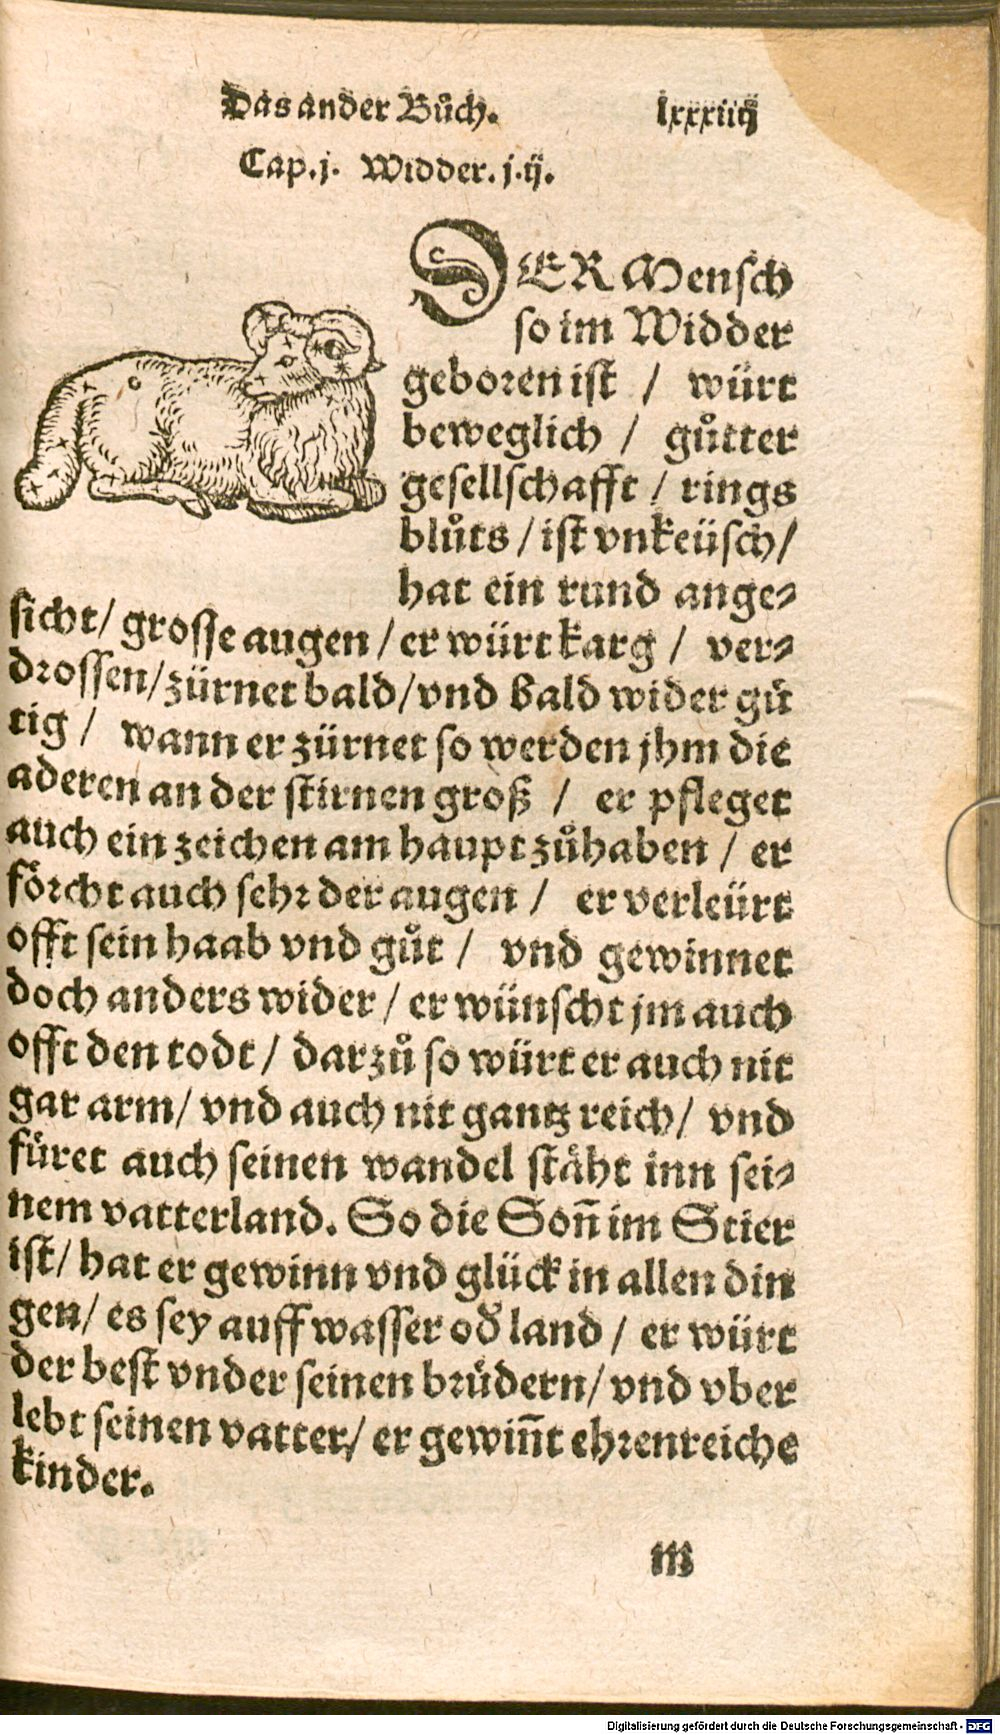 Das ander Bůch. lxxxiiij
Cap.j. Widder.j.ij.
DER Mensch
so im Widder
geboren ist / würt
beweglich / gůtter
gesellschafft / rings
blůts / ist vnkeüsch /
hat ein rund ange-
sicht / grosse augen / er würt karg / ver-
drossen / zürnet bald / vnd bald wider gů
tig / wann er zürnet so werden jhm die
aderen an der stirnen groß / er pfleget
auch ein zeichen am haupt zůhaben / er
förcht auch sehr der augen / er verleürt
offt sein haab vnd gůt / vnd gewinnet
doch anders wider / er wünscht jm auch
offt den todt / darzů so würt er auch nit
gar arm / vnd auch nit gantz reich / vnd
füret auch seinen wandel stäht inn sei-
nem vatterland. So die Soñ im Stier
ist / hat er gewinn vnd glück in allen din
gen / es sey auff wasser oď land / er würt
der best vnder seinen brüdern / vnd vber
lebt seinen vatter / er gewiñt ehrenreiche
kinder.
m
Digitalisierung gefördert durch die Deutsche Forschungsgemeinschaft - DFG